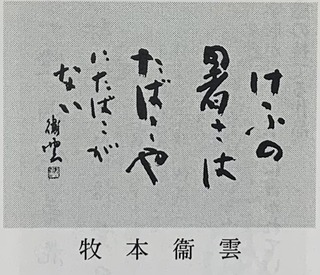 けふの
暑さは
たばこや
にたばこが
ない
衞雲
牧本衞雲